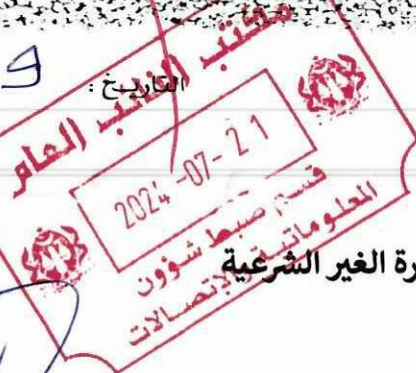 التاريخ :
مكتب النائب العام
2024 -07- 21
قسم ضبط شؤون
المعلوماتية والإتصالات
رة الغير الشرعية